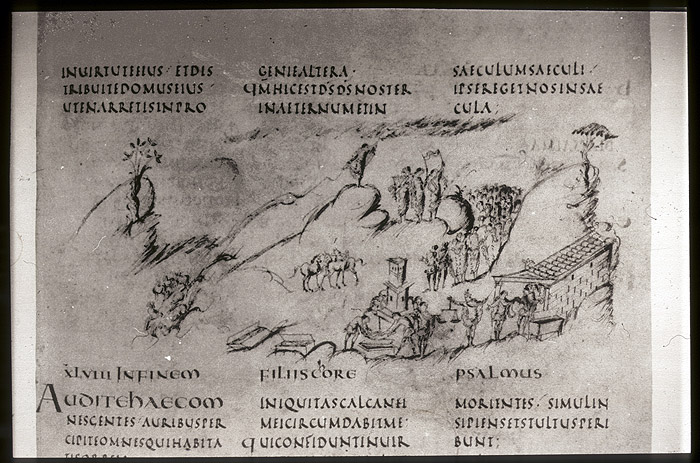 INUIRTUTEEIUS· ETDIS
TRIBUITEDOMUSEIUS·
UTENARRETISINPRO
GENIEALTERA·
QMHICESTDSDSNOSTER
INAETERNUMETIN
SAECULUMSAECULI·
IPSEREGETNOSINSAE
CULA;
XLVIII INFINEM FILIISCORE PSALMUS
AUDITEHAECOM
NESGENTES· AURIBUSPER
CIPITEOMNESQUIHABITA
INIQUITASCALCANEI
MEICIRCUMDABITME·
QUICONFIDUNTINUIR
MORIENTES· SIMULIN
SIPIENSETSTULTUSPERI
BUNT;